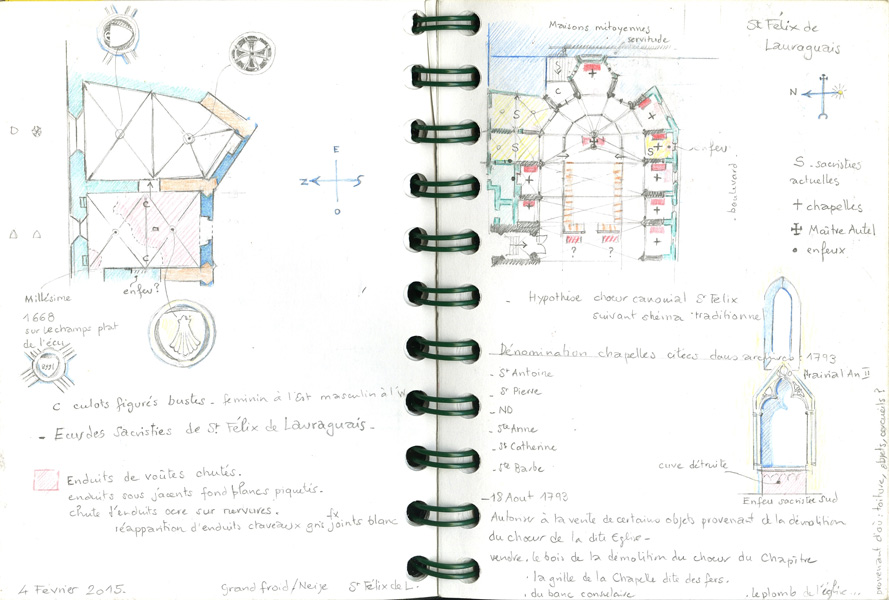 D
E
N
S
O
C
C
enfeu?
Millésime
1668
sur le champs plat
de l'écu
C culots figurés bustes. feminin à l'Est masculin à l'W
- Ecu des sacristies de St Félix de Lauraguais.
Enduits de voûtes chutés.
enduits sous jacents fond blancs piquetis.
chute d'enduits ocre sur nervures.
réapparition d'enduits claveaux gris fx joints blanc
4 Février 2015.
grand froid/Neige
St Félix de L.
Maisons mitoyennes
servitude
St Félix de
Lauraguais
N
S
C
S
S
S
enfeu
boulevard.
? ?
S. sacristies
actuelles
chapelles
Maître Autel
enfeux
- Hypothèse chœur canonial St Felix
suivant shéma traditionnel
- Dénomination chapelles citées dans archives: 1793
Prairial An II
- St Antoine
- St Pierre
- ND
- Ste Anne
- Ste Catherine
- Ste Barbe
cuve détruite
Enfeu sacristie sud
- 18 Aout 1793
Autoriser à la vente de certains objets provenant de la démolition
du chœur de la dite Eglise -
vendre. le bois de la démolition du chœur du Chapître
. la grille de la Chapelle dite des fers.
. du banc consulaire
. le plomb de l'église...
provenant d'où: toiture, objets, cercueils?